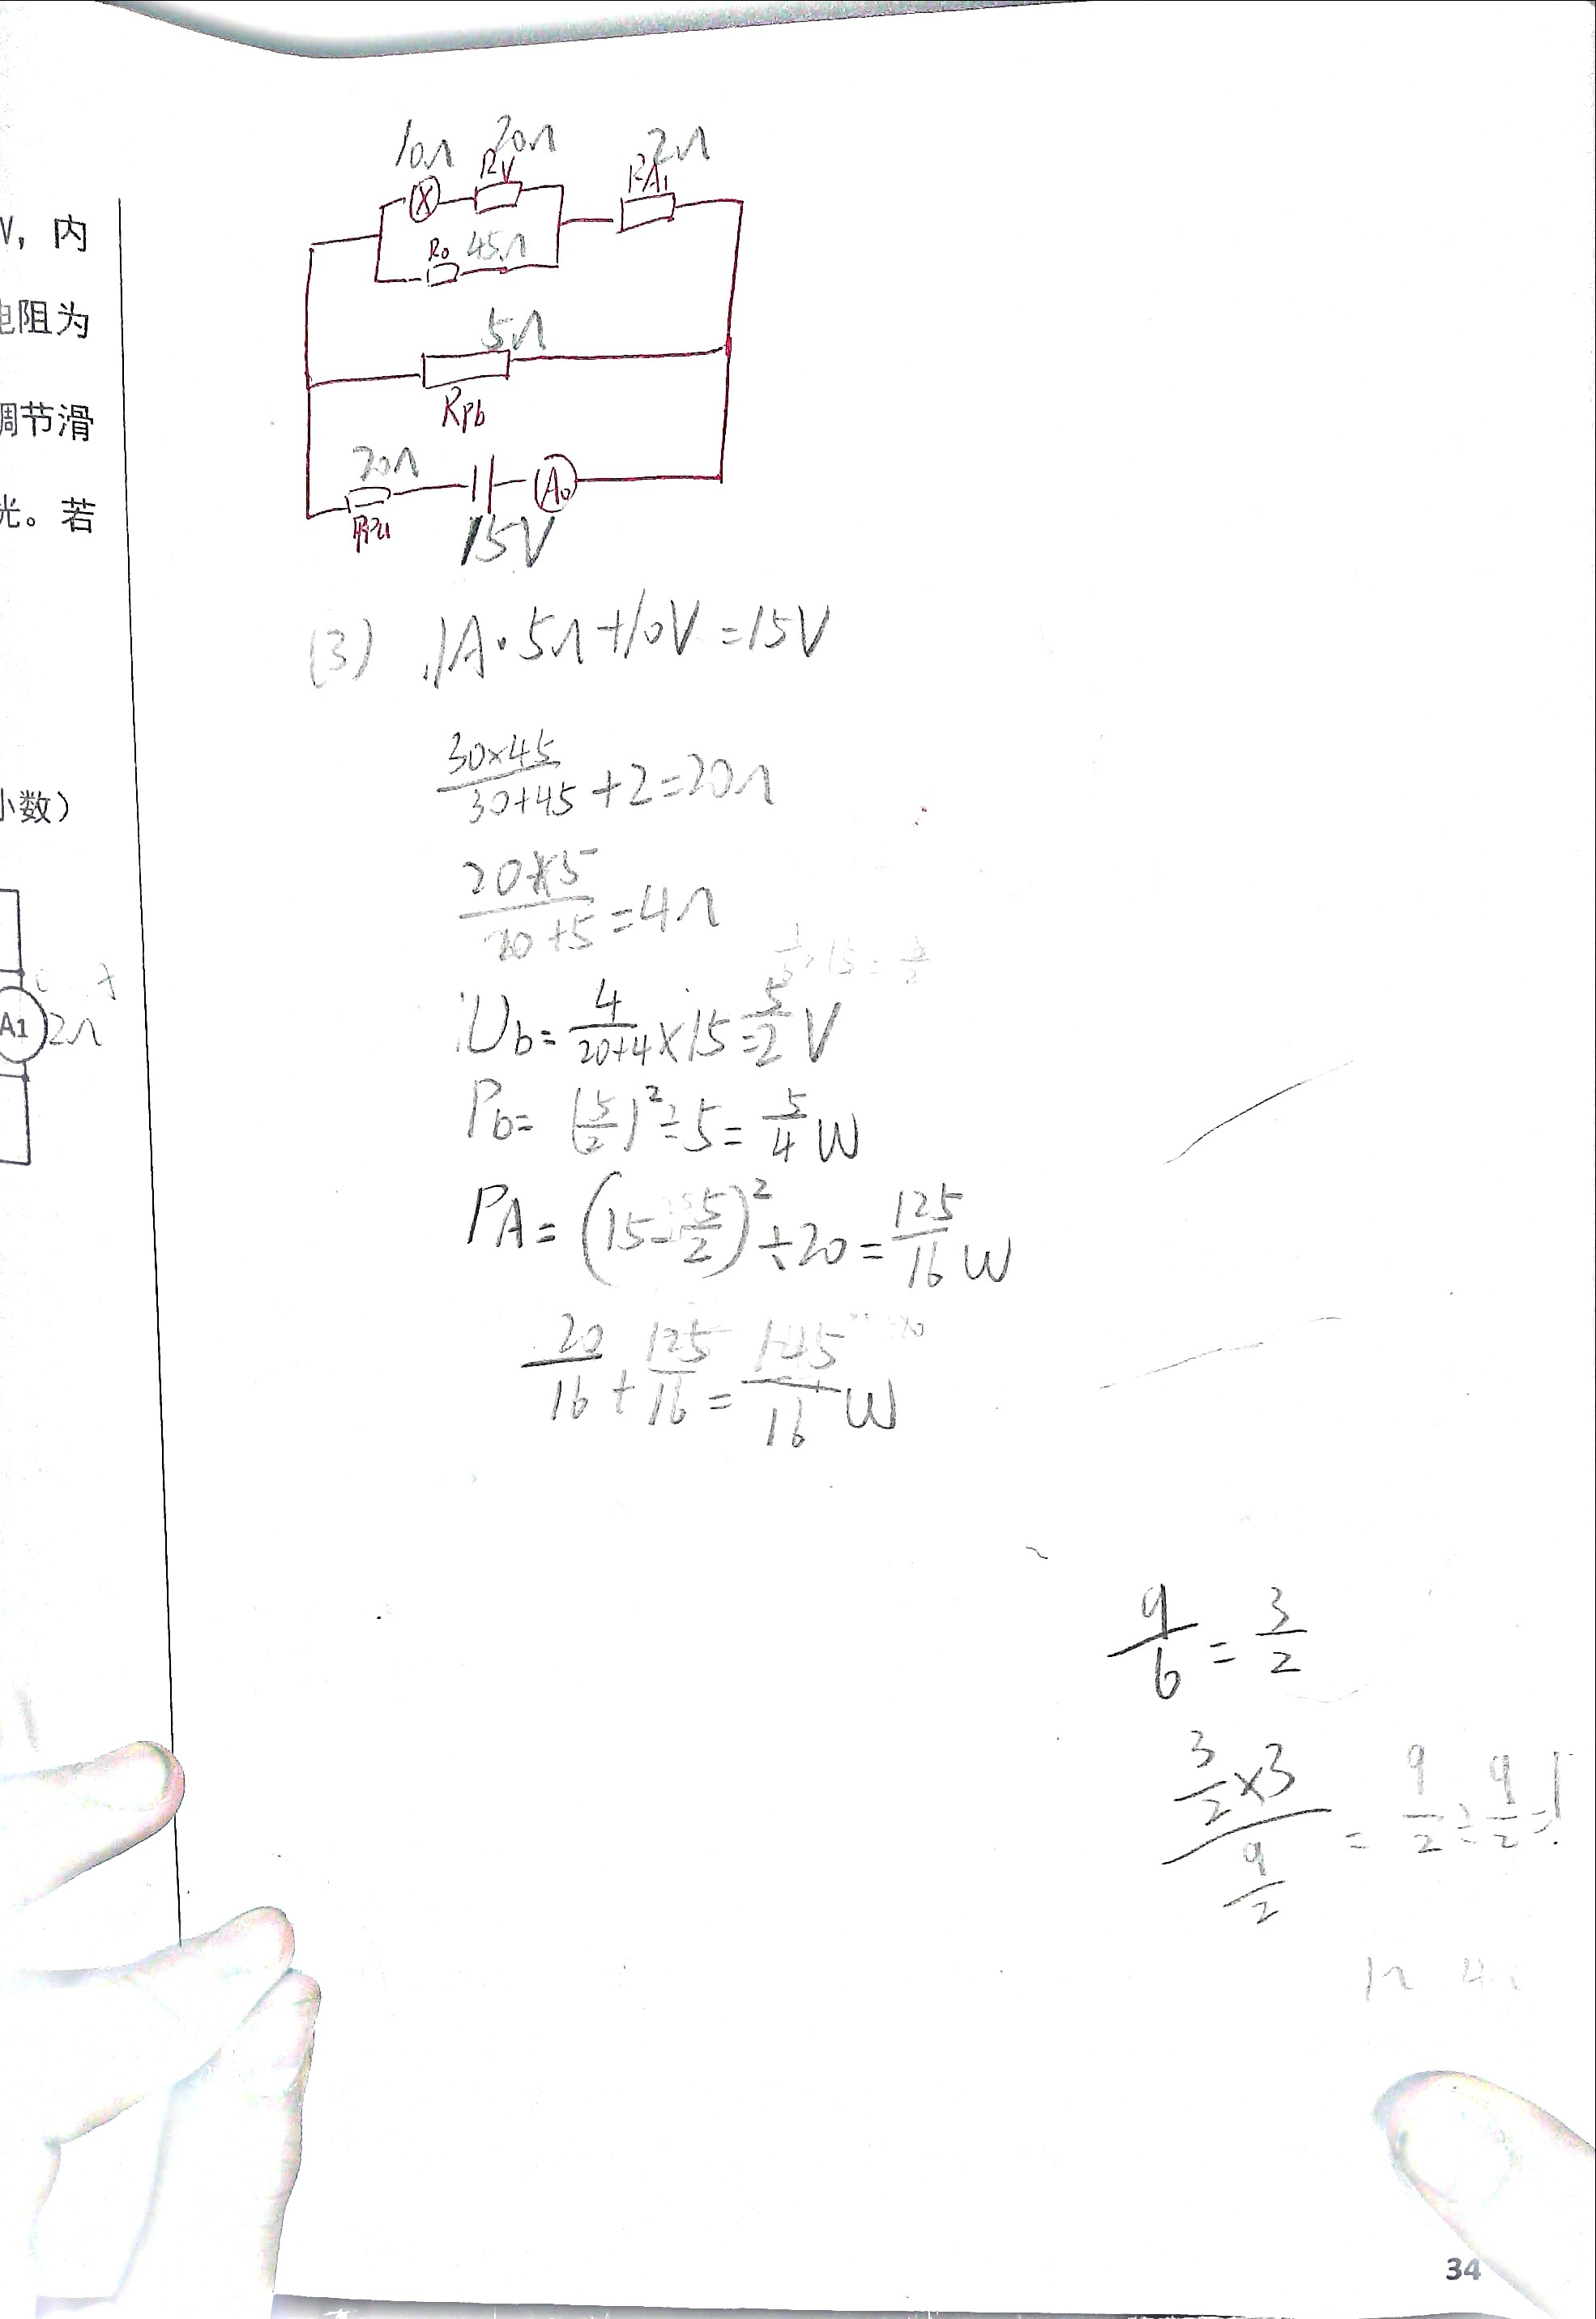 V，内
电阻为
调节滑
光。若
小数）
A1 2Ω
10Ω 20Ω 2Ω
RV RA1
R0 45Ω
5Ω
RPb
20Ω
A0
15V
(3) 1A·5Ω+10V=15V
30×45/30+45 +2=20Ω
20×5/20+5 =4Ω
Ub= 4/20+4 ×15= 5/2 V
Pb= (5/2)²÷5= 5/4 W
PA= (15-5/2)²÷20= 125/16 W
20/16 + 125/16 = 145/16 W
9/6 = 3/2
3/2×3 / 9/2 = 9/2 ÷ 9/2 =1
34